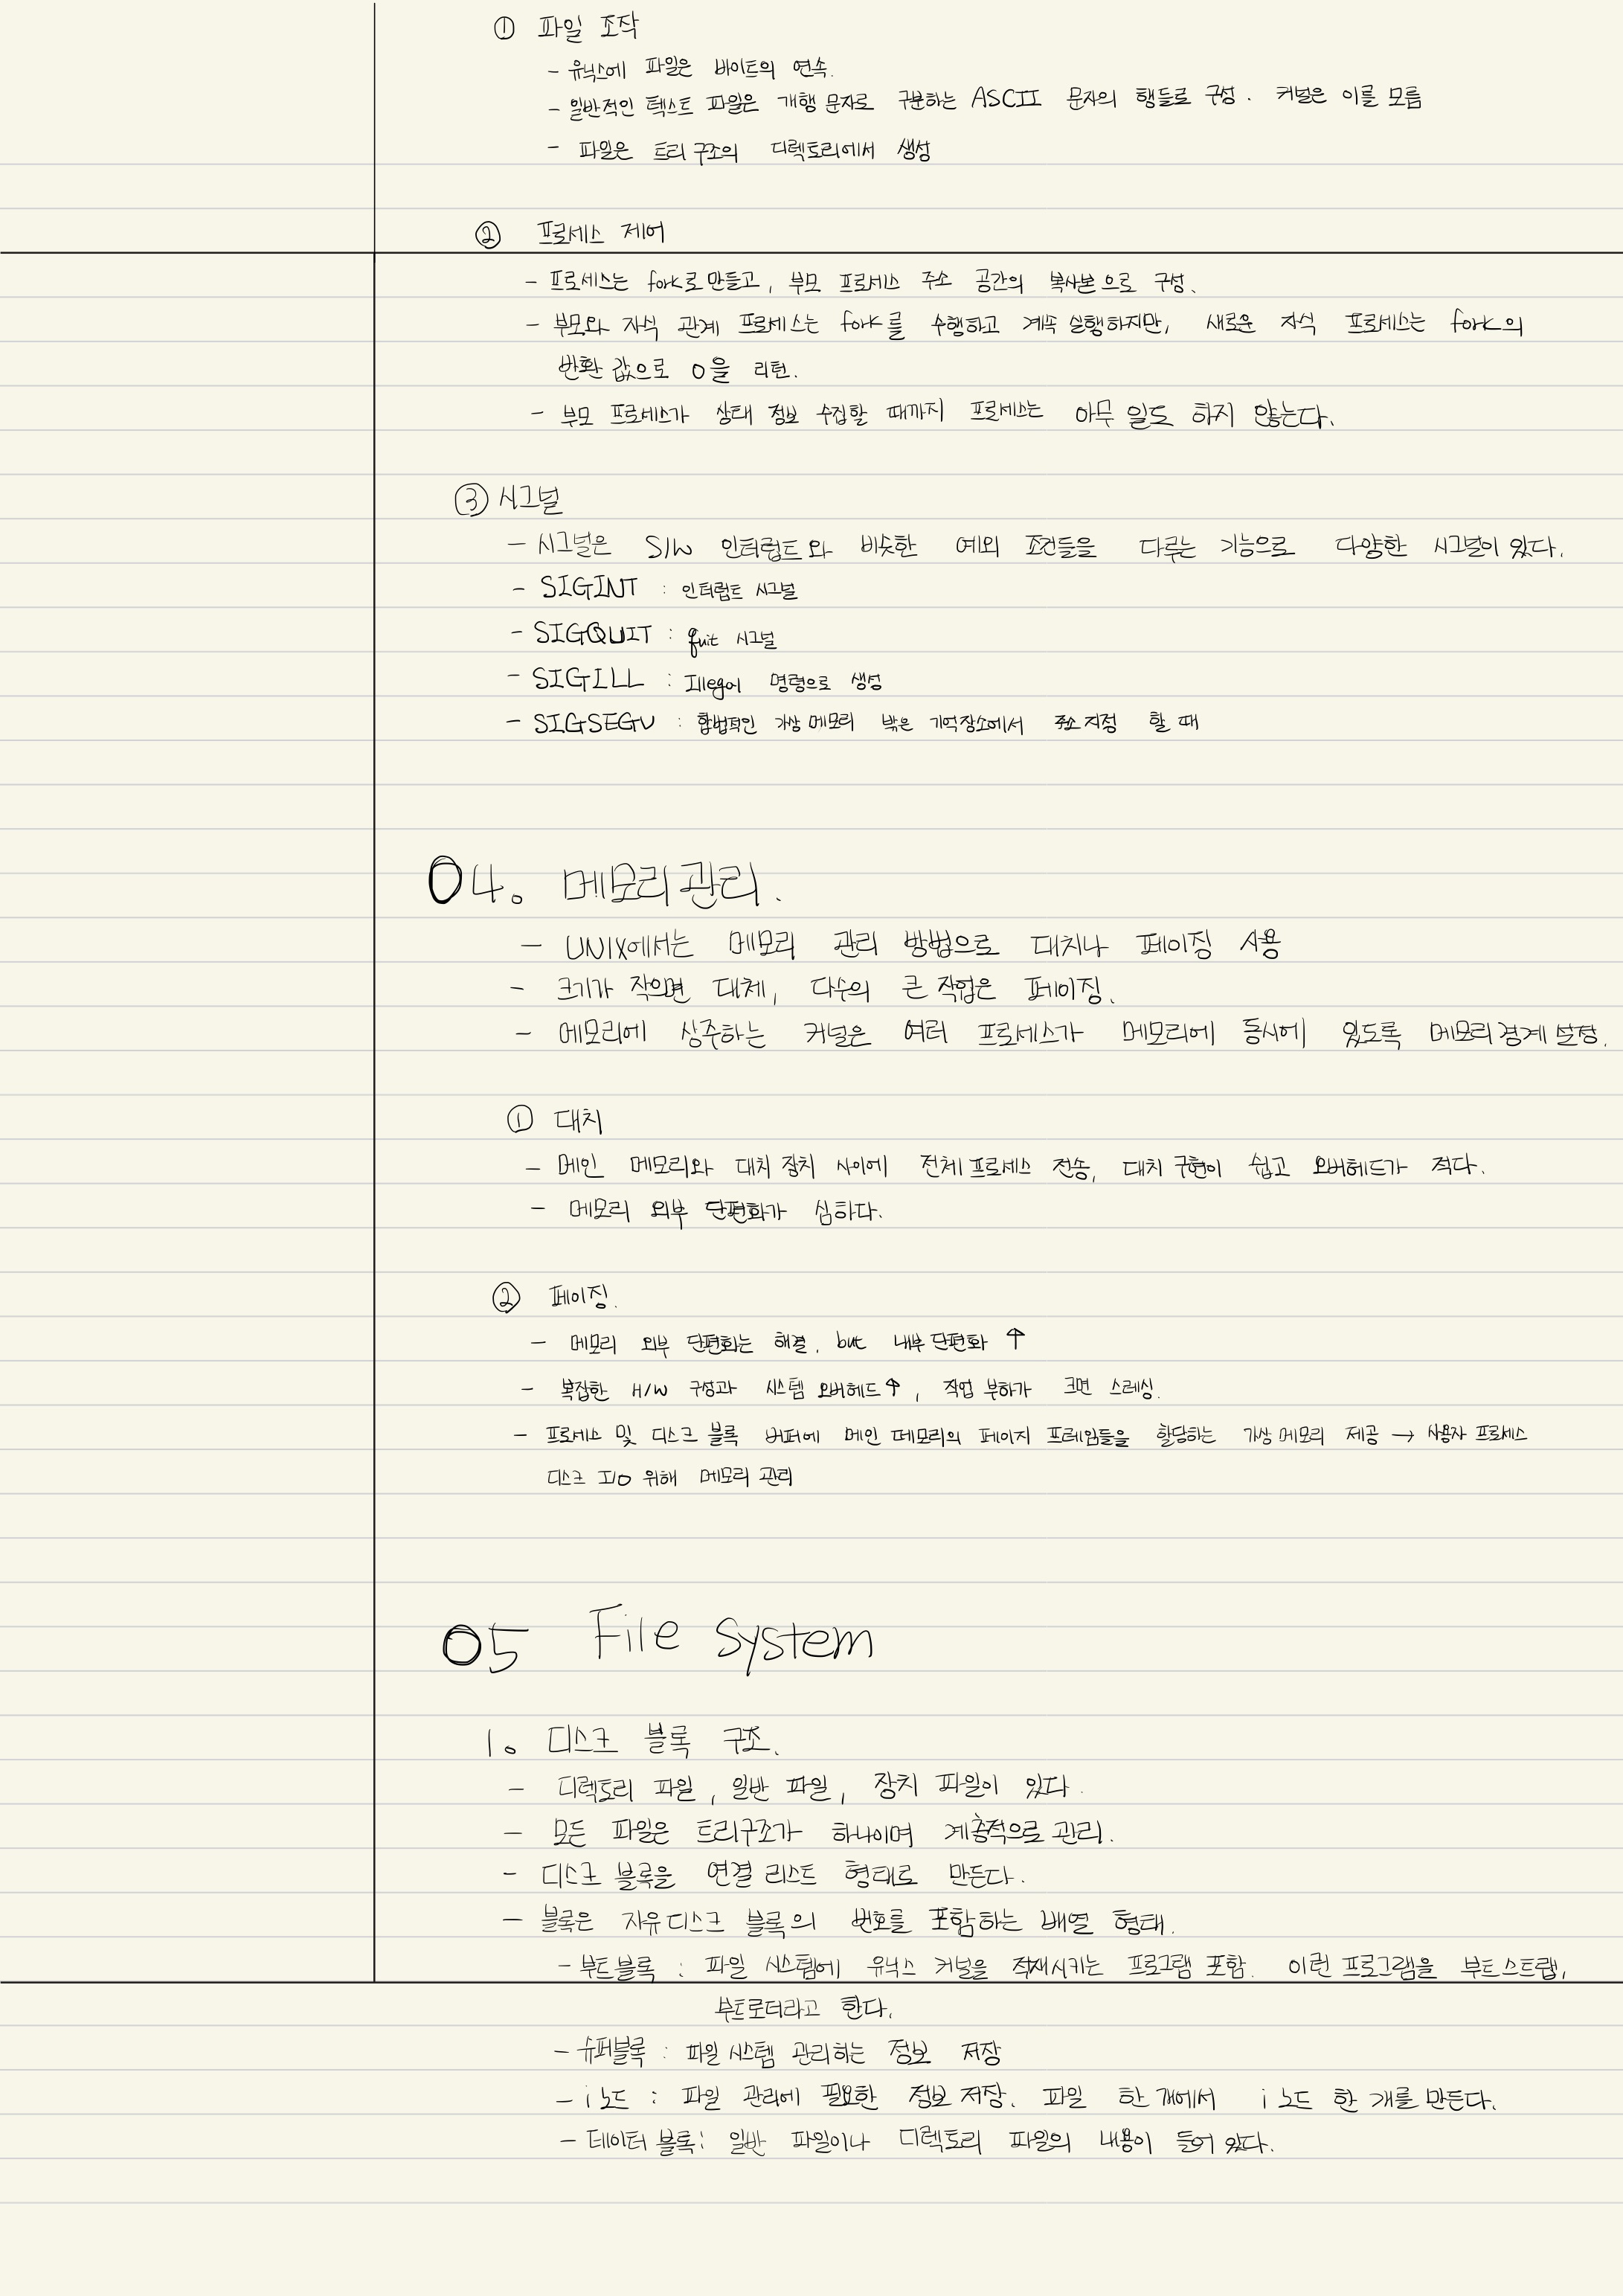 ① 파일 조작
- 유닉스에 파일은 바이트의 연속.
- 일반적인 텍스트 파일은 개행 문자로 구분하는 ASCII 문자의 행들로 구성. 커널은 이를 모름
- 파일은 트리 구조의 디렉토리에서 생성
② 프로세스 제어
- 프로세스는 fork로 만들고, 부모 프로세스 주소 공간의 복사본으로 구성.
- 부모와 자식 관계 프로세스는 fork를 수행하고 계속 실행하지만, 새로운 자식 프로세스는 fork의
반환 값으로 0을 리턴.
- 부모 프로세스가 상태 정보 수집할 때까지 프로세스는 아무 일도 하지 않는다.
③ 시그널
- 시그널은 S/W 인터럽트와 비슷한 예외 조건들을 다루는 기능으로 다양한 시그널이 있다.
- SIGINT : 인터럽트 시그널
- SIGQUIT : quit 시그널
- SIGILL : Illegal 명령으로 생성
- SIGSEGV : 합법적인 가상 메모리 밖은 기억장소에서 주소 지정 할 때
04. 메모리 관리.
- UNIX에서는 메모리 관리 방법으로 대치나 페이징 사용
- 크기가 작으면 대체, 다수의 큰 작업은 페이징.
- 메모리에 상주하는 커널은 여러 프로세스가 메모리에 동시에 있도록 메모리 경계 설정.
① 대치
- 메인 메모리와 대치 장치 사이에 전체 프로세스 전송, 대치 구현이 쉽고 오버헤드가 적다.
- 메모리 외부 단편화가 심하다.
② 페이징.
- 메모리 외부 단편화는 해결. but 내부 단편화 ↑
- 복잡한 H/W 구성과 시스템 오버헤드↑, 작업 부하가 크면 스레싱.
- 프로세스 및 디스크 블록 버퍼에 메인 메모리의 페이지 프레임들을 할당하는 가상 메모리 제공 → 사용자 프로세스
디스크 I/O 위해 메모리 관리
05 File system
1. 디스크 블록 구조.
- 디렉토리 파일, 일반 파일, 장치 파일이 있다.
- 모든 파일은 트리구조가 하나이며 계층적으로 관리.
- 디스크 블록을 연결 리스트 형태로 만든다.
- 블록은 자유 디스크 블록의 번호를 포함하는 배열 형태.
- 부트 블록 : 파일 시스템에 유닉스 커널을 적재시키는 프로그램 포함. 이런 프로그램을 부트스트랩,
부트로더라고 한다.
- 슈퍼블록 : 파일 시스템 관리하는 정보 저장
- i 노드 : 파일 관리에 필요한 정보 저장. 파일 한 개에서 i 노드 한 개를 만든다.
- 데이터 블록 : 일반 파일이나 디렉토리 파일의 내용이 들어 있다.